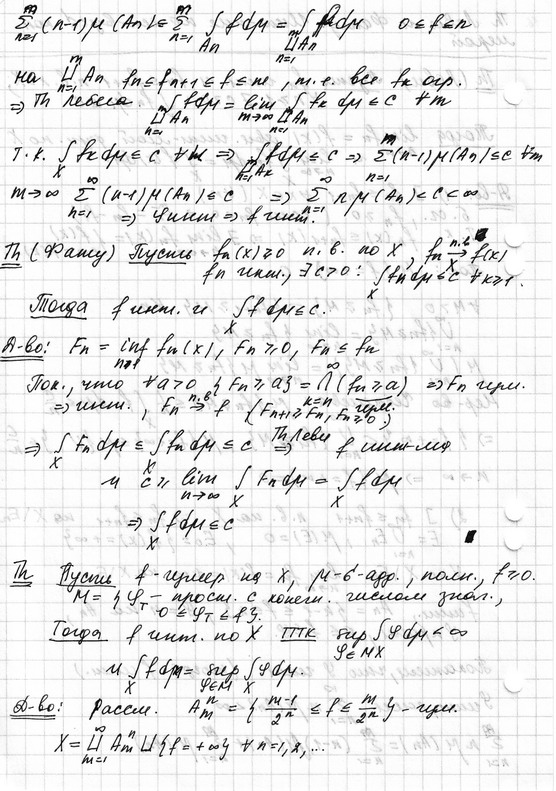 ∑_{n=1}^{m} (n-1)μ(Aₙ) ≤ ∑_{n=1}^{m} ∫_{Aₙ} f dμ = ∫_{⨆_{n=1}^{m} Aₙ} f dμ 0 ≤ f ≤ n
на ⨆_{n=1}^{m} Aₙ fₙ ≤ fₙ₊₁ ≤ f ≤ m, т.е. все fₖ огр.
⇒ Th Лебега ∫_{⨆_{n=1}^{m} Aₙ} f dμ = lim_{m→∞} ∫_{⨆_{n=1}^{m} Aₙ} fₖ dμ ≤ c ∀m
т.к. ∫_X fₖ dμ ≤ c ∀k ⇒ ∫_{⨆_{n=1}^{m} Aₖ} f dμ ≤ c ⇒ ∑_{n=1}^{m} (n-1)μ(Aₙ) ≤ c ∀m
m→∞ ∑_{n=1}^{∞} (n-1)μ(Aₙ) ≤ c ⇒ ∑_{n=1}^{∞} n μ(Aₙ) < c < ∞
⇒ φ инт ⇒ f инт.
Th (Фату) Пусть fₙ(x) ≥ 0 п.в. по X, fₙ →^{п.в.}_X f(x)
fₙ инт., ∃c>0: ∫_X fₙ dμ ≤ c ∀k ≥ 1.
Тогда f инт. и ∫_X f dμ ≤ c.
Д-во: Fₙ = inf fₙ(x), Fₙ ≥ 0, Fₙ ≤ fₙ
Пок., что ∀a>0 {Fₙ ≥ a} = ⋂_{k=n}^{∞} (fₙ ≥ a) ⇒ Fₙ изм.
⇒ инт., Fₙ →^{п.в} f (Fₙ₊₁ ≥ Fₙ, Fₙ ≥ 0)
⇒ ∫_X Fₙ dμ ≤ ∫_X fₙ dμ ≤ c ⇒^{Th Леви} f инт-ма
и c ≥ lim_{n→∞} ∫_X Fₙ dμ = ∫_X f dμ
⇒ ∫_X f dμ ≤ c
Th Пусть f-измер на X, μ-σ-адд., полн., f ≥ 0.
M = {φ_T – прост. с конечн. числом знач.,
0 ≤ φ_T ≤ f}.
Тогда f инт. по X ттк sup_{φ∈M} ∫_X φ dμ < ∞
и ∫_X f dμ = sup_{φ∈M} ∫_X φ dμ.
Д-во: Рассм. A_m^n = {(m-1)/2ⁿ ≤ f ≤ m/2ⁿ} – изм.
X = ⨆_{m=1}^{∞} A_m^n ⊔ {f = +∞} ∀n = 1, 2, ...